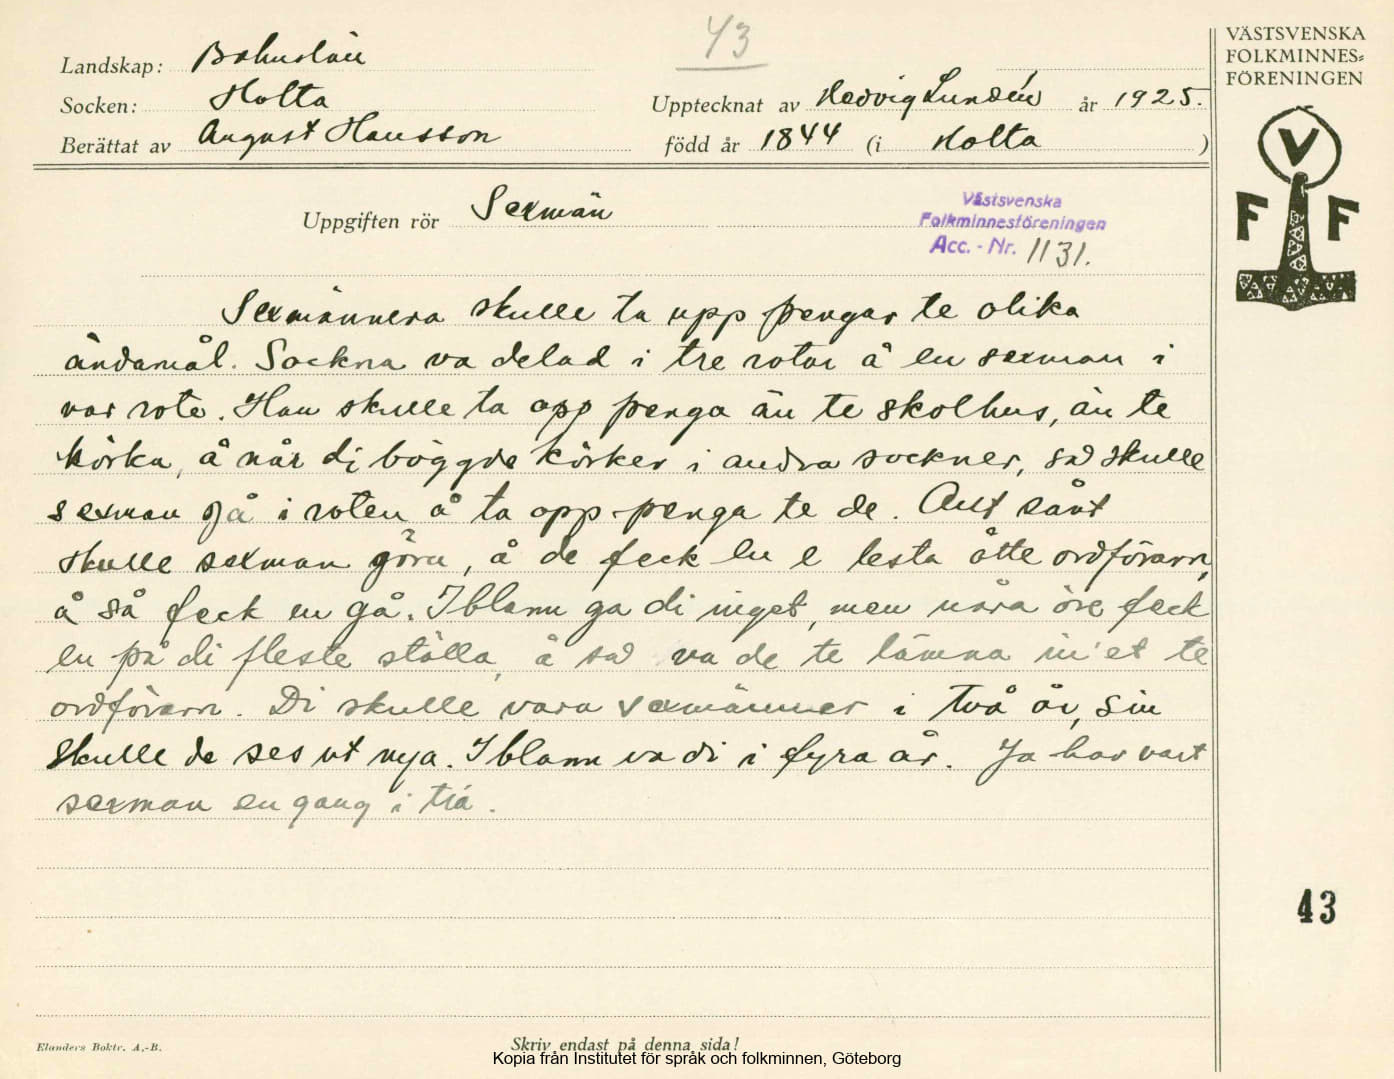 43
VÄSTSVENSKA
FOLKMINNES=
FÖRENINGEN
V
F F
Landskap: Bohuslän
Socken: Holta
Upptecknat av Hedvig Lundén år 1925.
Berättat av August Hansson
född år 1844 (i Holta )
Uppgiften rör Sexmän
Västsvenska
Folkminnesföreningen
Acc. - Nr. 1131.
Sexmännera skulle ta upp pengar te olika
ändamål. Sockna va delad i tre rotar å en sexman i
var rote. Han skulle ta opp penga än te skolhus, än te
körka, å når di böggde körker i andra sockner, så skulle
sexman gå i roten å ta opp penga te de. Allt sånt
skulle sexman göra, å de feck en e lesta åtte ordförarn,
å så feck en gå. Iblann ga di inget, men nåra öre feck
en på di fleste ställa, å så va de te lämna in'et te
ordförarn. Di skulle vara sexmänner i två år, sin
skulle de ses ut nya. Iblann va di i fyra år. Ja har vart
sexman en gang i tia.
43
Elanders Boktr. A.-B.
Skriv endast på denna sida!
Kopia från Institutet för språk och folkminnen, Göteborg